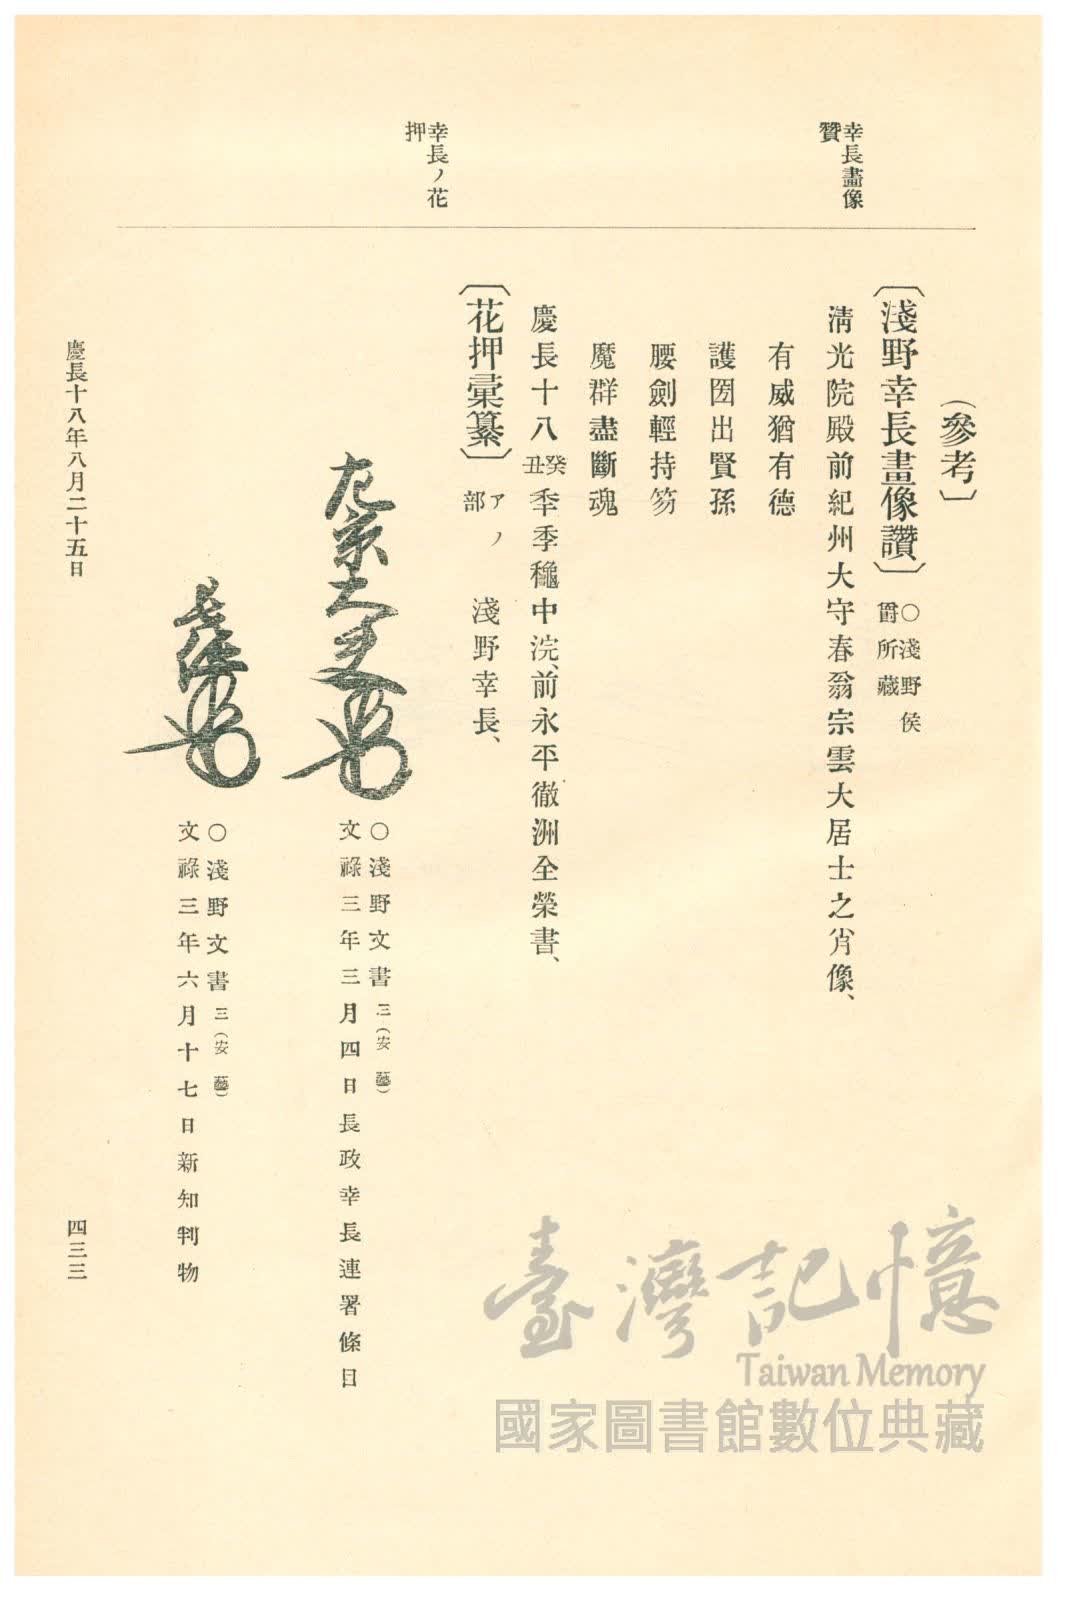 幸長畫像
贊
〔參考〕
〔淺野幸長畫像讚〕○淺野侯
爵所藏
清光院殿前紀州大守春翁宗雲大居士之肖像、
有威猶有德
護圀出賢孫
腰劍輕持笏
魔群盡斷魂
慶長十八癸丑季季龝中浣、前永平徹洲全榮書、
幸長ノ花
押
〔花押彙纂〕アノ部 淺野幸長、
左京大夫
○淺野文書三(安藝)
文祿三年三月四日長政幸長連署條目
○淺野文書三(安藝)
文祿三年六月十七日新知判物
慶長十八年八月二十五日
四三三
臺灣記憶
Taiwan Memory
國家圖書館數位典藏